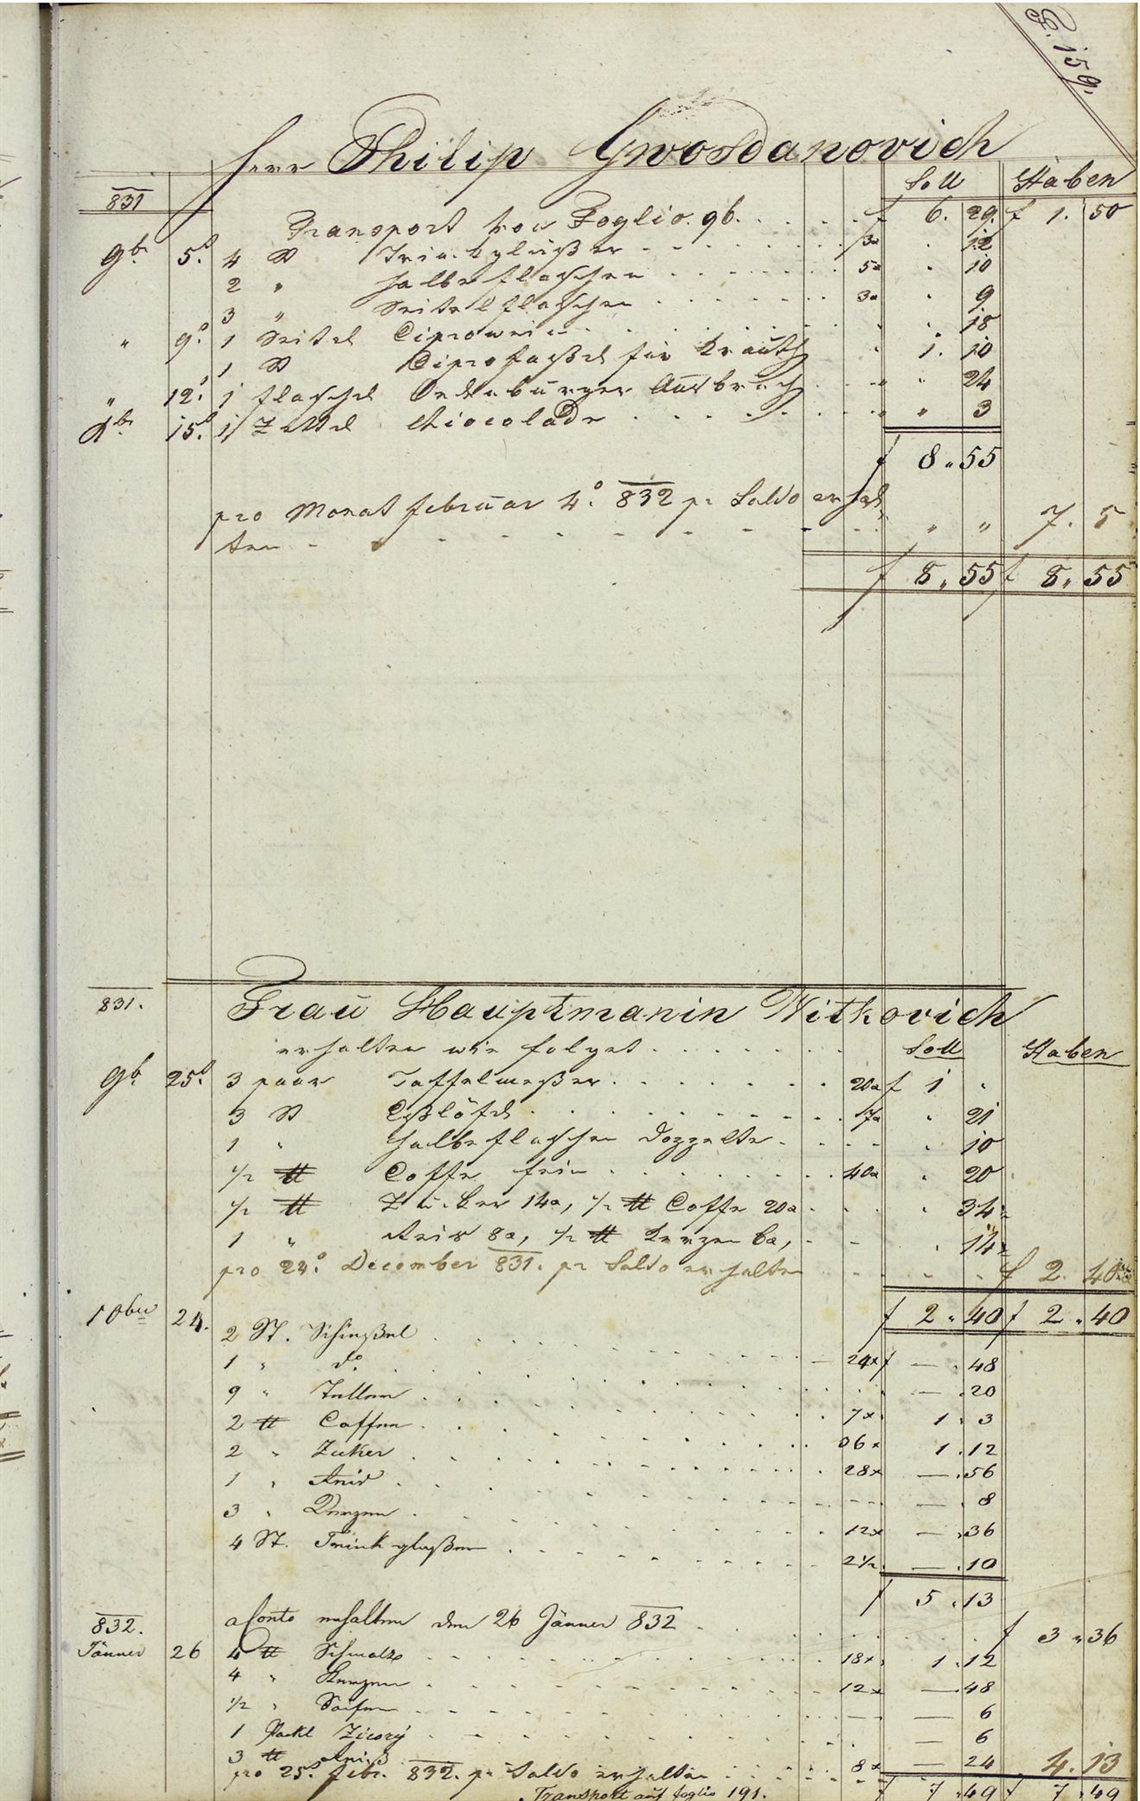 P. 159.
Herr Philip Gwosdanovich
831 Soll Haben
Transport von Foglio 96. f 6. 29. f 1. 50
9br. 5t. 4 St Trinkgläßer 3x " 12
2 " halbe Flaschen 5x " 10
3 " Seitelflaschen 3x " 9
" 9t. 1 Seitel Ciprowein " 18
1 St Ciprofaßel für Krauth " 1. 10
" 12t. 1 Flasche Oedenburger Ausbruch " " 24
Xbr. 15t. 1 Zettel Chiocolade " " 3
f 8 " 55
pro Monat Februar 4o. 832 pr Saldo erhal
ten " " 7. 5
f 8 " 55 f 8 " 55
831. Frau Hauptmanin Witkovich
erhalten wie folget Soll Haben
9br. 25t. 3 paar Taffelmeßer 20x f 1 "
3 St Eßlöfel 7x " 21
1 " halbe Flaschen doppelte " 10
1/2 ℔ Coffe fein 40x " 20
1/2 ℔ Zucker 14x, 1/2 ℔ Coffe 20x " 34
1 " Reis 8x, 1/2 ℔ Kerzen 6x, " 14
pro 24o. December 831. pr Saldo erhalten f 2. 40
10ber 24. f 2 " 40 f 2 " 40
2 St. 24x f — . 48
1 " do — . 20
9 " Teller 7x 1 . 3
2 ℔ Caffee 36x 1 . 12
2 " Zuker 28x — . 56
1 " Reis — . 8
3 " Kerzen 12x — . 36
4 St. Trinkgläßer 2 1/2 — . 10
f 5 . 13
832. a Conto erhalten den 26 Jänner 832 f 3 " 36
Jänner 26 4 ℔ Schmalz 18x 1 . 12
4 " Kerzen 12x — 48
1/2 " Seifen — 6
1 Packl Zicory — 6
3 ℔ Reis 8x — 24
pro 25t. Febr. 832. pr Saldo erhalten 4. 13
Transport auf foglio 191. f 7 . 49 f 7 . 49